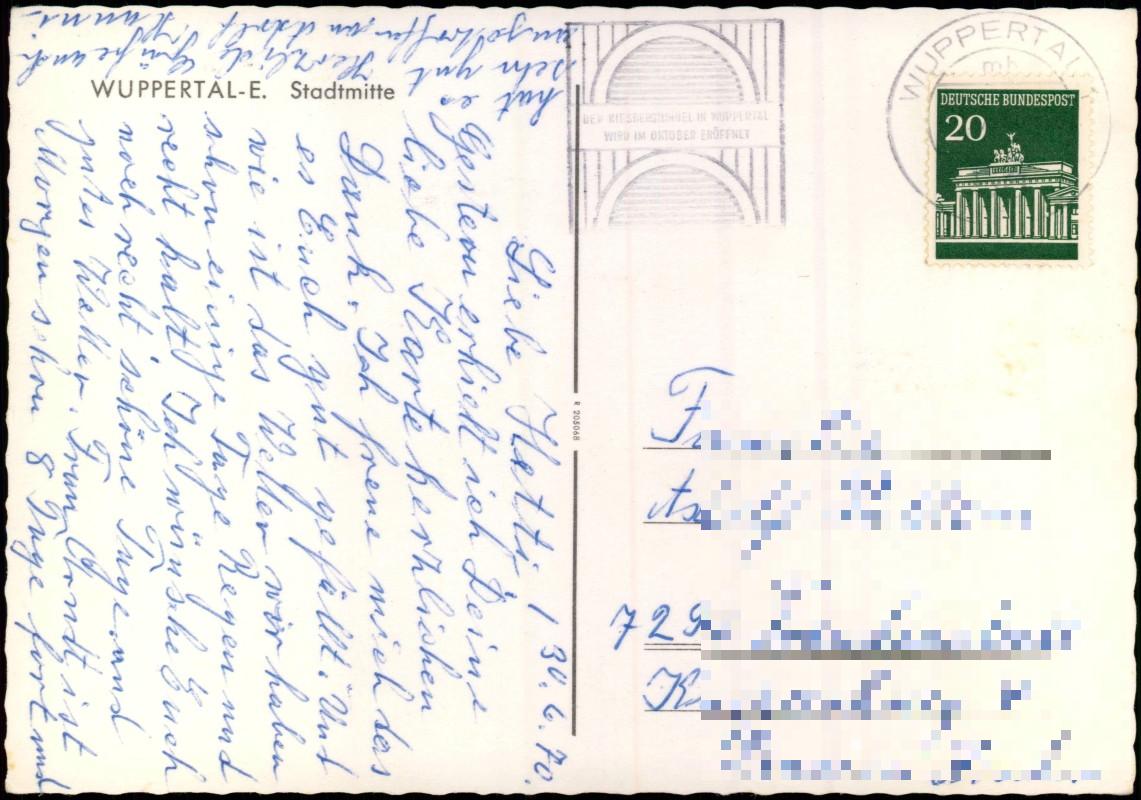 WUPPERTAL-E. Stadtmitte
Liebe Hatti! 30.6.70.
Gestern erhielt ich Deine
liebe Karte herzlichen
Dank. Ich freue mich das
es Euch gut gefällt. Und
wie ist das Wetter wir haben
schon einige Tage Regen und
recht kalt. Ich wünsche Euch
noch recht schöne Tage und
gutes Wetter. Frau Arndt ist
Morgen schon 8 Tage fort und
hat es
sehr gut
angetroffen
Herzliche Grüße auch
R 205068
DER KIESBERGTUNNEL IN WUPPERTAL
WIRD IM OKTOBER ERÖFFNET
WUPPERTAL
mb
DEUTSCHE BUNDESPOST
20
729